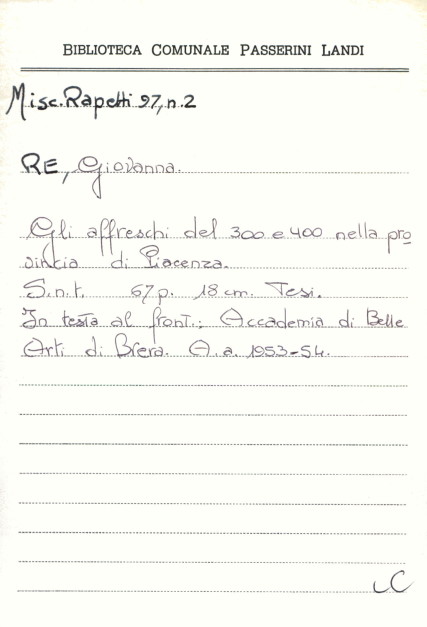 BIBLIOTECA COMUNALE PASSERINI LANDI
Misc. Rapetti 97, n. 2
RE, Giovanna.
Gli affreschi del 300 e 400 nella pro
vincia di Piacenza.
S.n.t. 67 p. 18 cm. Tesi.
In testa al front.: Accademia di Belle
Arti di Brera. A.a. 1953-54.